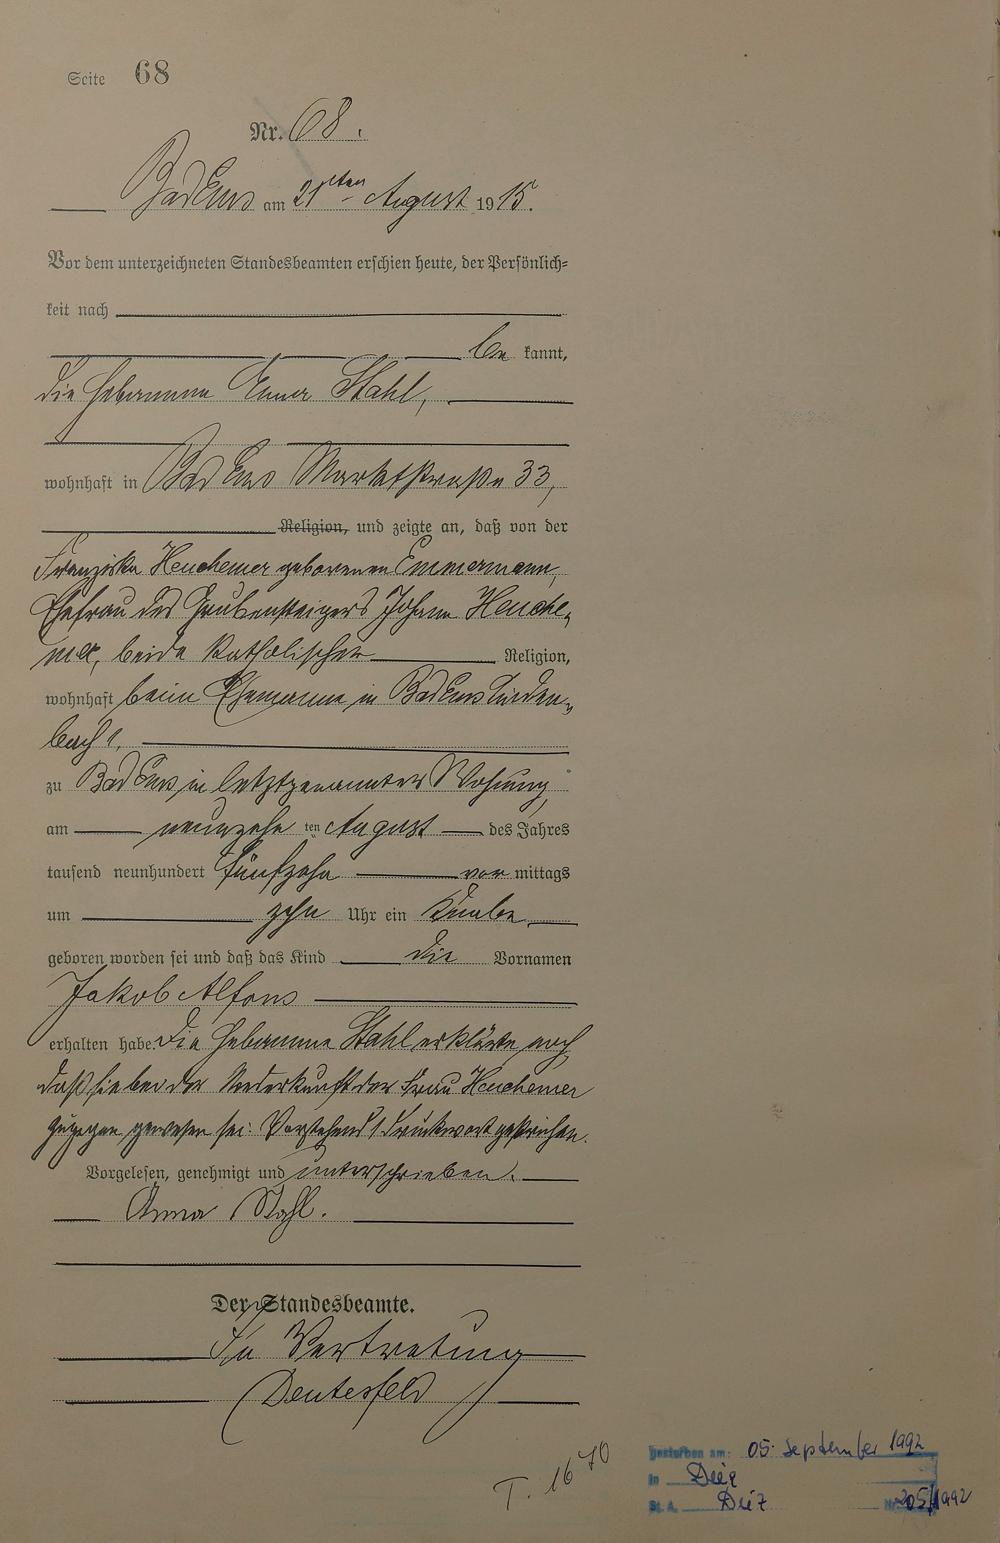 Seite 68
Nr. 68.
Bad Ems am 21ten August 1915.
Vor dem unterzeichneten Standesbeamten erschien heute, der Persönlich=
keit nach
be kannt,
die Hebamme Anna Stahl,
wohnhaft in Bad Ems Marktstraße 33,
Religion, und zeigte an, daß von der
Franziska Heuchemer geborenen Emmermann,
Ehefrau des Grubensteigers Johann Heuche-
mer, beide katholischer Religion,
wohnhaft beim Ehemanne in Bad Ems Linden-
bach 1,
zu Bad Ems in letztgenannter Wohnung,
am neunzehn ten August des Jahres
tausend neunhundert fünfzehn vor mittags
um zehn Uhr ein Knabe
geboren worden sei und daß das Kind die Vornamen
Jakob Alfons
erhalten habe. Die Hebamme Stahl erklärte noch,
daß sie bei der Niederkunft der Frau Heuchemer
zugegen gewesen sei. Vorstehend 1 Druckwort gestrichen.
Vorgelesen, genehmigt und unterschrieben.
Anna Stahl.
Der Standesbeamte.
In Vertretung
T. 1670
Gestorben am: 05. September 1992
in Diez
St. A. Diez Nr. 205/1992